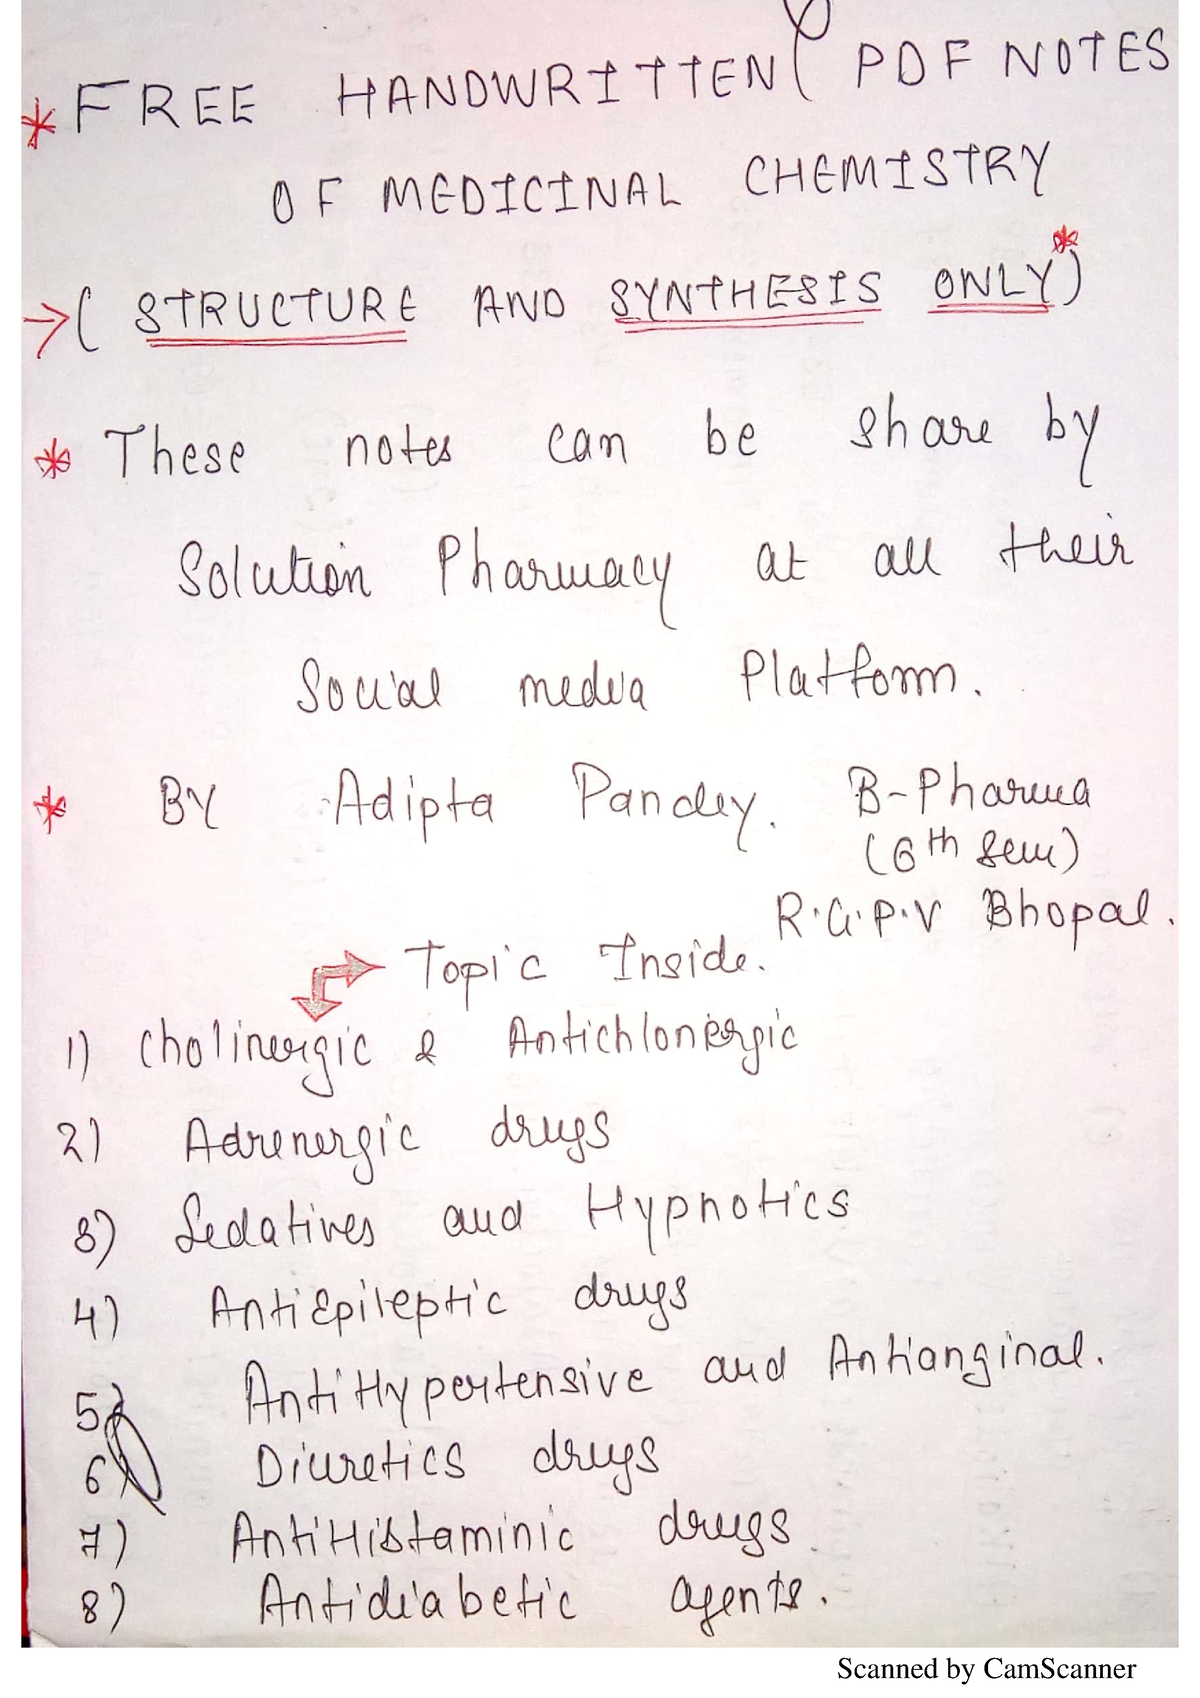 * FREE HANDWRITTEN PDF NOTES
OF MEDICINAL CHEMISTRY
→( STRUCTURE AND SYNTHESIS ONLY*)
* These notes can be share by
Solution Pharmacy at all their
Social media Platform.
* BY Adipta Pandey. B-Pharma
(6th Sem)
R.G.P.V Bhopal.
Topic Inside.
1) Cholinergic & Antichlonergic
2) Adrenergic drugs
3) Sedatives and Hypnotics
4) AntiEpileptic drugs
5) AntiHypertensive and Antianginal.
6) Diuretics drugs
7) AntiHistaminic drugs
8) Antidiabetic agents.
Scanned by CamScanner